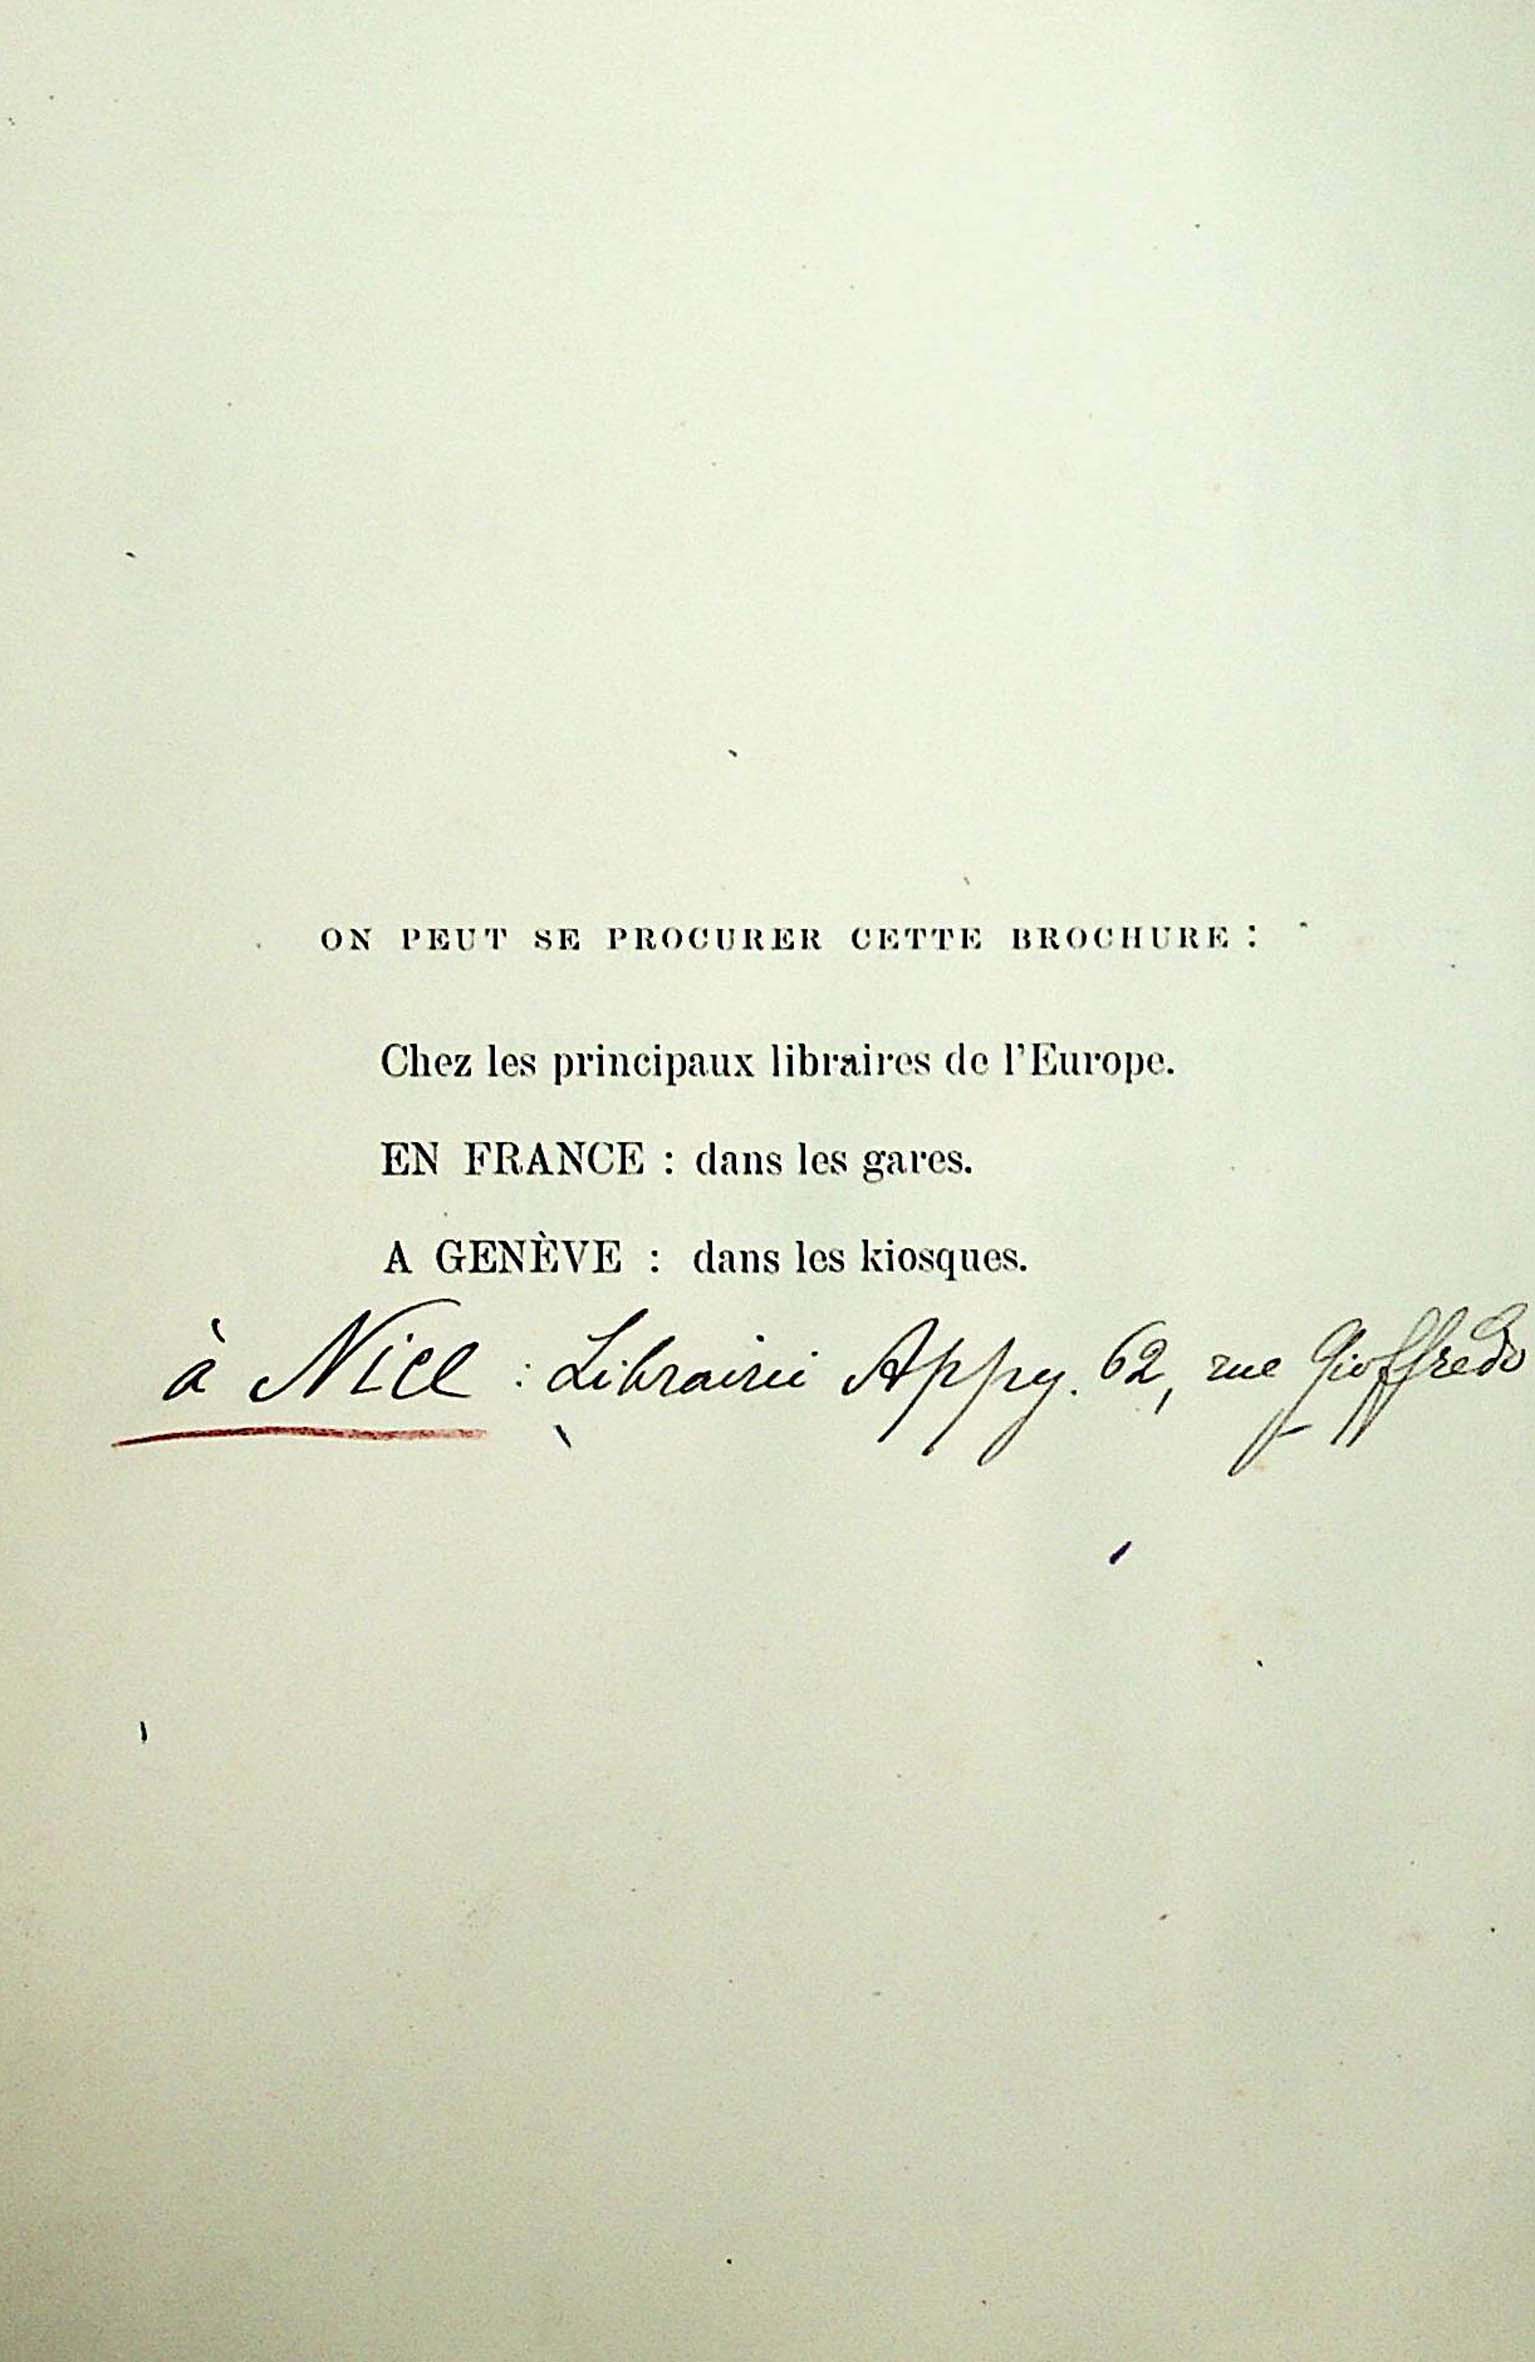 ON PEUT SE PROCURER CETTE BROCHURE :
Chez les principaux libraires de l'Europe.
EN FRANCE : dans les gares.
A GENÈVE : dans les kiosques.
à Nice : Librairie Appy. 62, rue Gioffredo